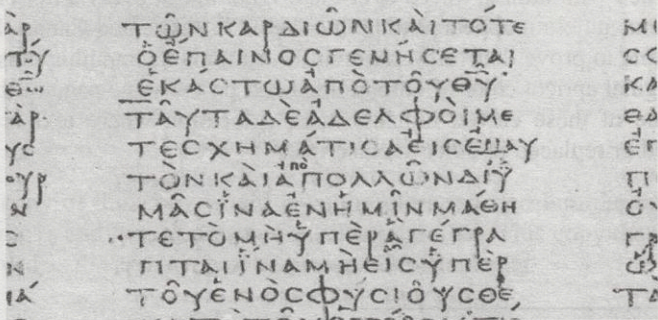 ΤΩΝΚΑΡΔΙΩΝΚΑΙΤΟΤΕ
ΟΕΠΑΙΝΟϹΓΕΝΗϹΕΤΑΙ
ΕΚΑϹΤΩΑΠΟΤΟΥΘΥ
ΤΑΥΤΑΔΕΑΔΕΛΦΟΙΜΕ
ΤΕϹΧΗΜΑΤΙϹΑΕΙϹΕΜΑΥ
ΤΟΝΚΑΙΑΠΟΛΛΩΝΔΙΥ
ΜΑϹΙΝΑΕΝΗΜΙΝΜΑΘΗ
ΤΕΤΟΜΗΥΠΕΡΑΓΕΓΡΑ
ΠΤΑΙΙΝΑΜΗΕΙϹΥΠΕΡ
ΤΟΥΕΝΟϹΦΥϹΙΟΥϹΘΕ